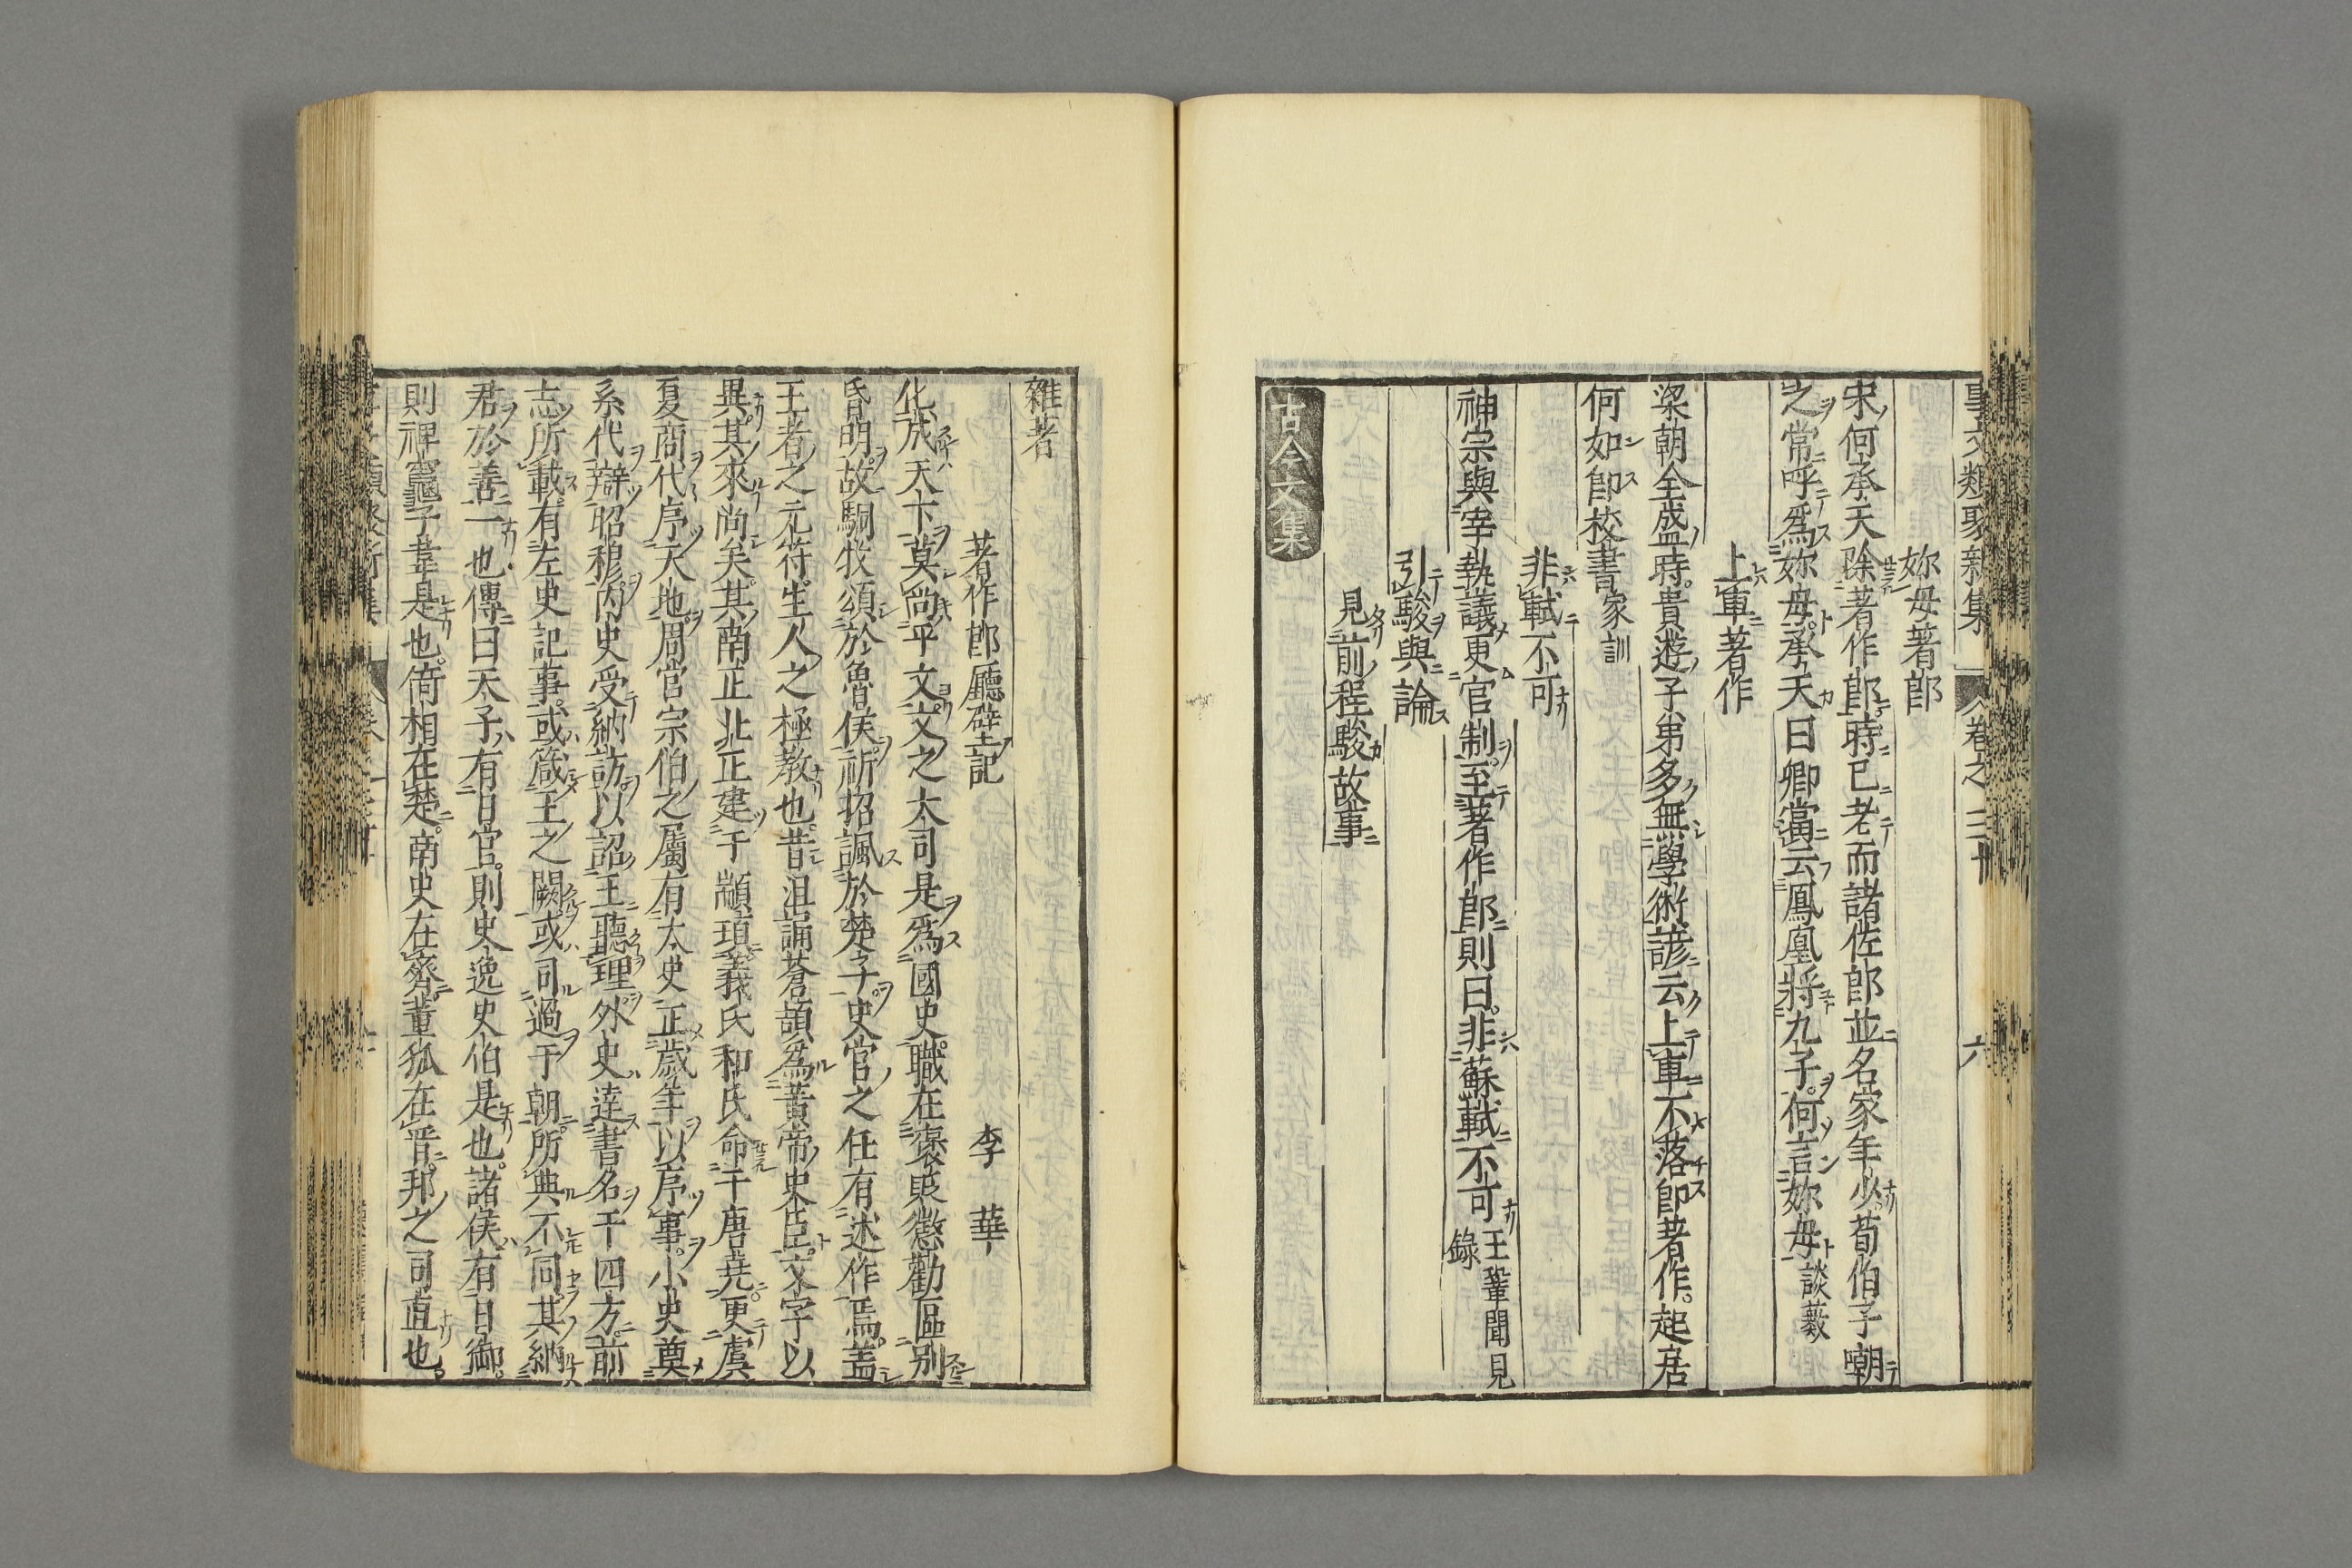 事文類聚新集 卷之三十 六
妳母著郎
宋何承天除著作郎時已老而諸佐郎並名家年少荀伯子嘲
之常呼爲妳母承天曰卿當云鳳凰將九子何言妳母談藪
上車著作
梁朝全盛時貴遊子弟多無學術諺云上車不落卽著作起居
何如卽校書家訓
非軾不可
神宗與宰執議更官制至著作郎則曰非蘇軾不可王鞏聞見
錄
引駿與論
見前程駿故事
古今文集
雜著
著作郎廳壁記 李華
化成天下莫尚乎文文之太司是爲國史職在褒貶懲勸區別
昏明故駉牧頌於魯侯祈招諷於楚子史官之任有述作焉蓋
王者之元符生人之極教也昔沮誦蒼頡爲黃帝史臣文字以
異其來尚矣其南正北正建于顓頊義氏和氏命于唐堯更虞
夏商代序天地周官宗伯之屬有太史正歲年以序事小史奠
系代辯昭穆內史受納訪以詔王聽理外史達書名于四方前
志所載有左史記事或箴王之闕或司過于朝所典不同其納
君於善一也傳曰天子有日官則史逸史伯是也諸侯有日御
則裨竈子韋是也倚相在楚南史在齊董狐在晋邦之司直也